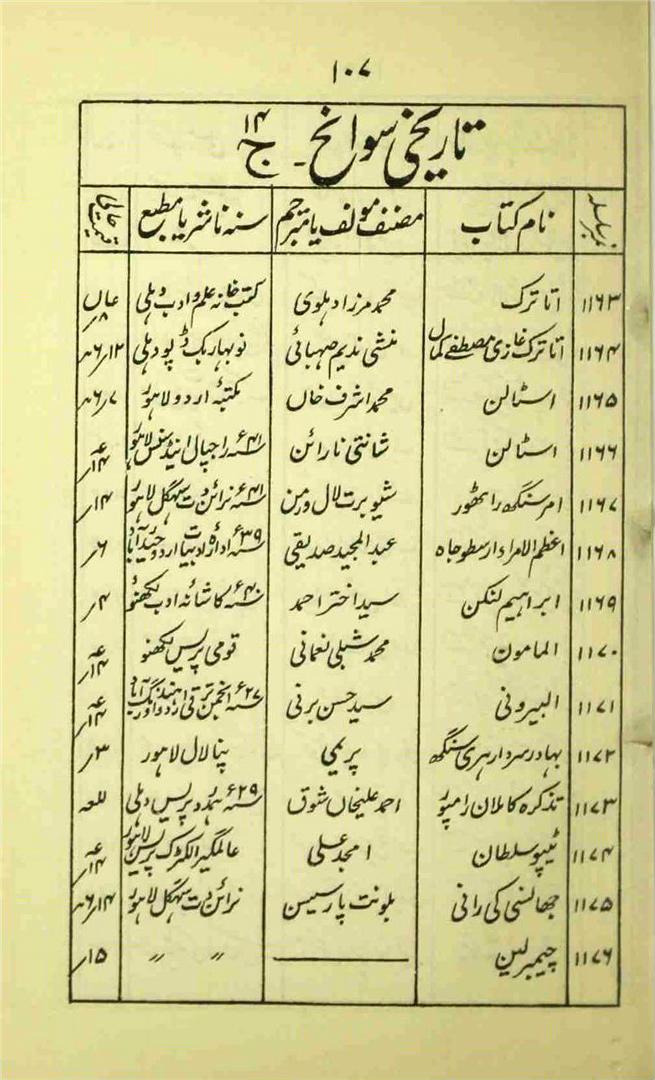 ۱۰۷
تاریخی سوانح - ج ۱۴
نمبر سلسلہ نام کتاب مصنف مولف یا مترجم سنہ ناشر یا مطبع
۱۱۶۳ اتاترک محمد مرزا دہلوی کتب خانہ علم و ادب دہلی
۱۱۶۴ اتاترک غازی مصطفےٰ کمال منشی ندیم صہبائی نوبہار بک ڈپو دہلی ۱۲ر ۶
۱۱۶۵ اسٹالن محمد اشرف خاں مکتبۂ اردو لاہور ۷ر ۶
۱۱۶۶ اسٹالن شانتی نارائن سنہ ۴۱ء راجپال اینڈ سنس لاہور ۱۴ر
۱۱۶۷ امر سنگھ راٹھور شیو برت لال ورمن سنہ ۴۱ء نرائن دت سہگل لاہور ۱۴ر
۱۱۶۸ اعظم الامراء ارسطو جاہ عبدالمجید صدیقی سنہ ۳۹ء ادارۂ ادبیات اردو حیدرآباد ۶ر
۱۱۶۹ ابراہیم لنکن سید اختر احمد سنہ ۴۰ء کاشانۂ ادب لکھنؤ ۴ر
۱۱۷۰ المامون محمد شبلی نعمانی قومی پریس لکھنو ۱۴ر
۱۱۷۱ البیرونی سید حسن برنی سنہ ۲۷ء انجمن ترقی اردو اورنگ آباد ۱۴ر
۱۱۷۲ بہادر سردار ہری سنگھ پریمی پنا لال لاہور ۳ر
۱۱۷۳ تذکرہ کاملان رامپور احمد علیخاں شوق سنہ ۲۹ء ہمدرد پریس دہلی للعہ
۱۱۷۴ ٹیپو سلطان امجد علی عالمگیر الکٹرک پریس لاہور ۱۴ر
۱۱۷۵ جھانسی کی رانی بلونت پارسیسن نرائن دت سہگل لاہور ۱۴ر ۶
۱۱۷۶ چیمبرلین ——— " " ۱۵ر